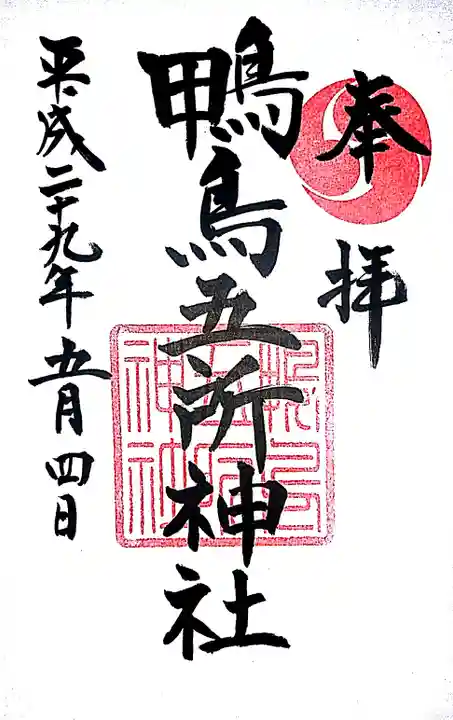 奉拝
鴨鳥五所神社
平成二十九年五月四日